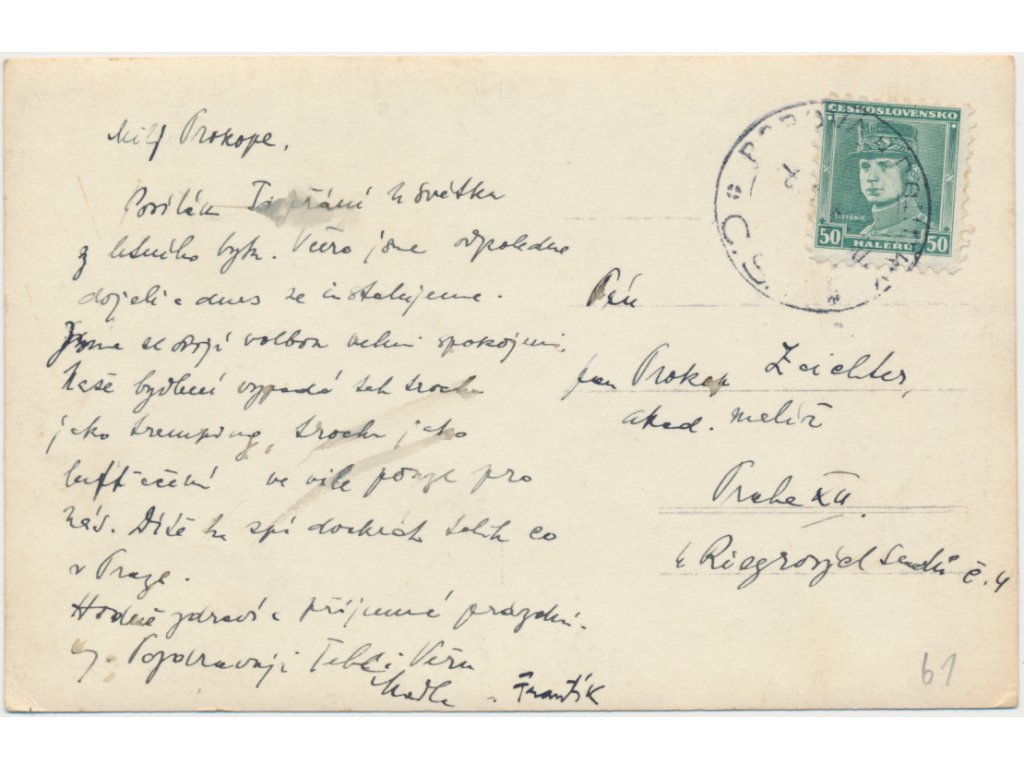 Milý Prokope,
Posílám Ti přání k svátku
z letního bytu. Včera jsme odpoledne
dojeli a dnes se instalujeme.
Jsme se svojí volbou velmi spokojeni.
Naše bydlení vypadá tak trochu
jako tramping, trochu jako
ve vile pouze pro
nás. Dítě tu spí dvakrát tolik co
v Praze.
Hodně zdraví a příjemné prázdn.
Pozdravují Tebe i Věru
Madla a Frantík
ČESKOSLOVENSKO
ŠTEFÁNIK
50 HALÉŘŮ 50
Pán
pan Prokop
akad. malíř
Praha XII.
u Riegrových sadů č. 4
61